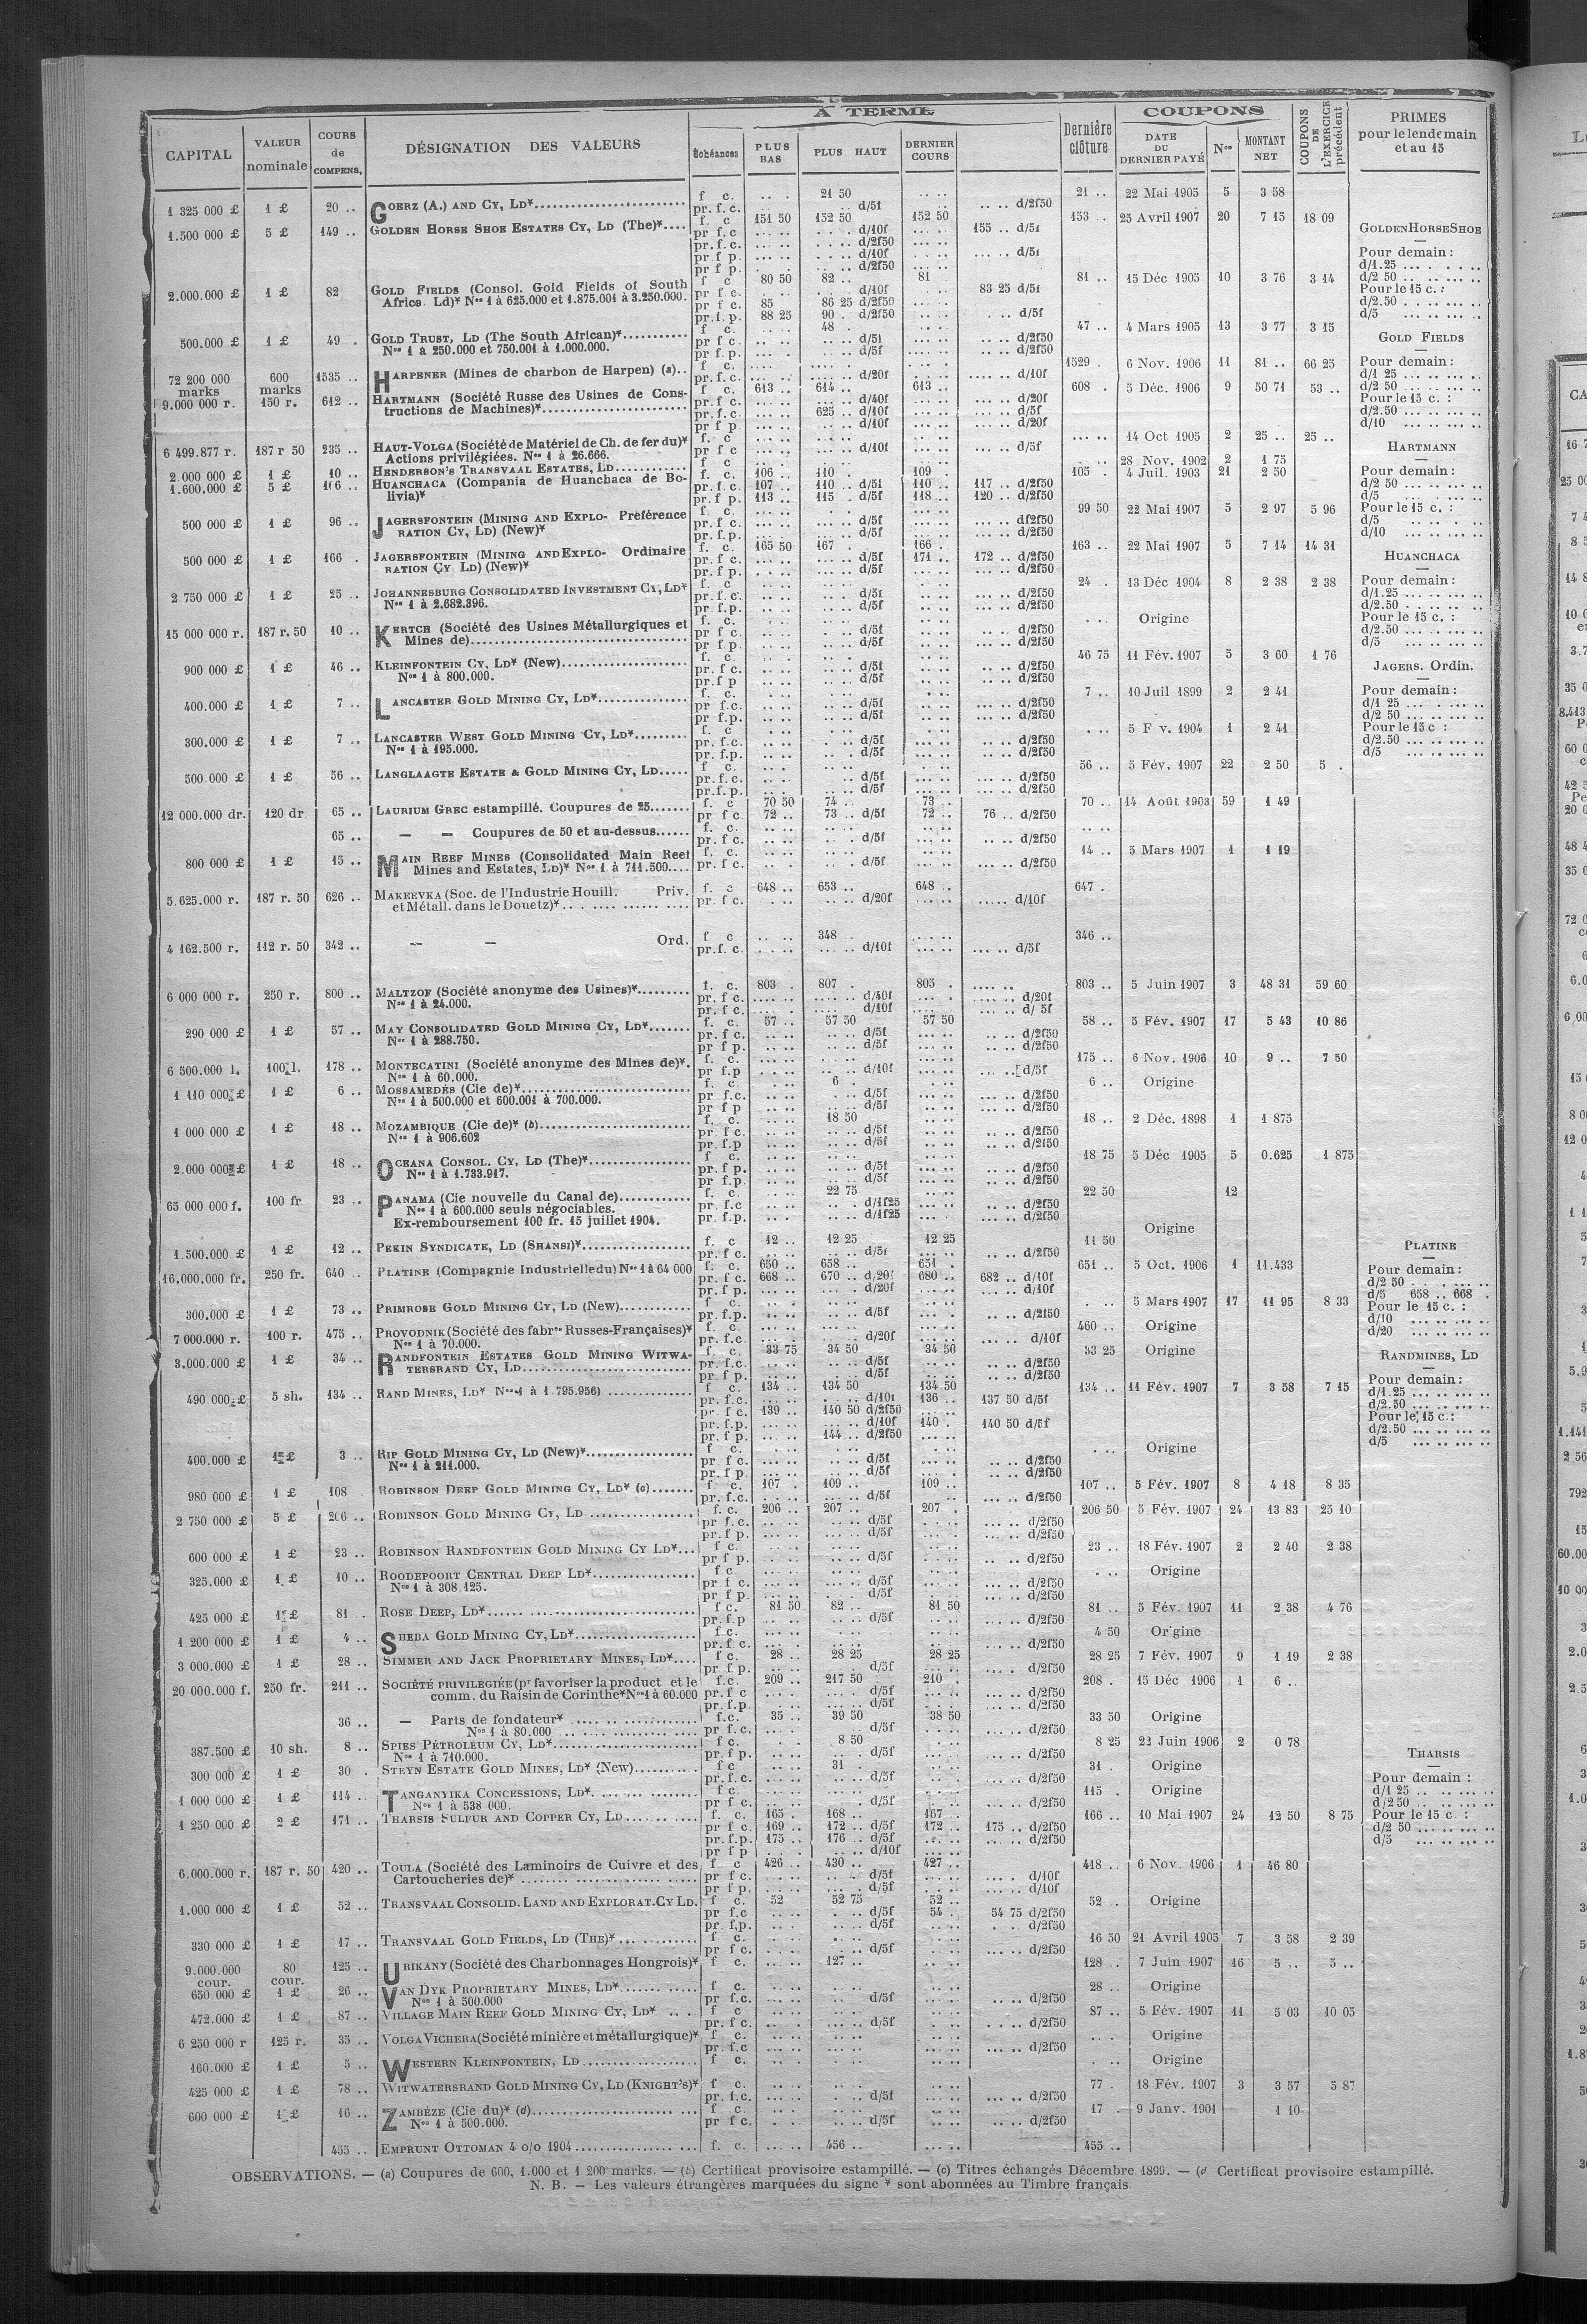 A TERME
COUPONS
CAPITAL
VALEUR nominale
COURS de COMPENS.
DÉSIGNATION DES VALEURS
Échéances
PLUS BAS
PLUS HAUT
DERNIER COURS
Dernière clôture
DATE DU DERNIER PAYÉ
Nos
MONTANT NET
COUPONS DE L'EXERCICE précédent
PRIMES pour le lendemain et au 15
1 325 000 £ 1 £ 20 .. GOERZ (A.) AND CY, LD* f c. 21 50 21 .. 22 Mai 1905 5 3 58
pr. f. c. d/5f .. .. d/2f50
1.500 000 £ 5 £ 149 .. GOLDEN HORSE SHOE ESTATES CY, LD (The)* f. c 151 50 152 50 152 50 153 . 25 Avril 1907 20 7 15 18 09
pr f. c d/10f 155 .. d/5f
pr. f. c. d/2f50
pr f p. d/10f d/5f
pr f p. d/2f50
2.000.000 £ 1 £ 82 GOLD FIELDS (Consol. Gold Fields of South f c 80 50 82 .. 81 81 .. 15 Déc 1905 10 3 76 3 14
Africa Ld)* Nos 1 à 625.000 et 1.875.001 à 3.250.000. pr f c. d/10f 83 25 d/5f
pr f c. 85 86 25 d/2f50
pr. f. p. 88 25 90 . d/2f50 d/5f
500.000 £ 1 £ 49 . GOLD TRUST, LD (The South African)* f c. 48 . 47 .. 4 Mars 1905 13 3 77 3 15
Nos 1 à 250.000 et 750.001 à 1.000.000. pr f c. d/5f d/2f50
pr f. p. d/5f d/2f50
72 200 000 marks 600 marks 1535 .. HARPENER (Mines de charbon de Harpen) (a).. f c. 1529 . 6 Nov. 1906 11 81 .. 66 25
pr. f. c. d/20f d/10f
9.000 000 r. 150 r. 612 .. HARTMANN (Société Russe des Usines de Cons- f c. 613 .. 614 .. 613 .. 608 . 5 Déc. 1906 9 50 71 53 ..
tructions de Machines)* pr. f. c. d/40f d/20f
pr. f. c. 625 .. d/10f d/5f
pr f p d/10f d/20f
6 499.877 r. 187 r 50 235 .. HAUT-VOLGA (Société de Matériel de Ch. de fer du)* f. c 14 Oct 1905 2 25 .. 25 ..
Actions privilégiées. Nos 1 à 26.666. pr f c d/10f d/5f
2.000 000 £ 1 £ 10 .. HENDERSON'S TRANSVAAL ESTATES, LD f c 28 Nov. 1902 2 1 75
1.600.000 £ 5 £ 106 .. HUANCHACA (Compania de Huanchaca de Bo- f. c. 106 .. 110 .. 109 .. 105 . 4 Juil. 1903 21 2 50
livia)* pr. f. c. 107 .. 110 .. d/5f 110 .. 117 .. d/2f50
pr f p. 113 .. 115 . d/5f 118 .. 120 .. d/2f50
500 000 £ 1 £ 96 .. JAGERSFONTEIN (MINING AND EXPLO- Préférence f. c. 99 50 22 Mai 1907 5 2 97 5 96
RATION CY, LD) (New)* pr f c. d/5f d/2f50
pr. f. p. d/5f d/2f50
500 000 £ 1 £ 166 . JAGERSFONTEIN (MINING AND EXPLO- Ordinaire f. c. 165 50 167 . 166 . 163 .. 22 Mai 1907 5 7 14 14 31
RATION CY LD) (New)* pr f c. d/5f 171 .. 172 .. d/2f50
pr f p. d/5f d/2f50
2 750 000 £ 1 £ 25 .. JOHANNESBURG CONSOLIDATED INVESTMENT CY, LD* f c 24 . 13 Déc 1904 8 2 38 2 38
Nos 1 à 2.682.396. pr. f. c. d/5f d/2f50
pr. f. p. d/5f d/2f50
15 000 000 r. 187 r. 50 10 .. KERTCH (Société des Usines Métallurgiques et f. c. Origine
Mines de) pr f c. d/5f d/2f50
pr f p. d/5f d/2f50
900 000 £ 1 £ 46 .. KLEINFONTEIN CY, LD* (New) f. c. 46 75 11 Fév. 1907 5 3 60 1 76
Nos 1 à 800.000. pr. f c d/5f d/2f50
pr. f p d/5f d/2f50
400.000 £ 1 £ 7 .. LANCASTER GOLD MINING CY, LD* f. c. 7 .. 10 Juil 1899 2 2 41
pr f.c. d/5f d/2f50
pr f.p. d/5f d/2f50
300.000 £ 1 £ 7 .. LANCASTER WEST GOLD MINING CY, LD* f. c 5 F v. 1904 1 2 41
Nos 1 à 195.000. pr. f.c. d/5f d/2f50
pr. f.p. d/5f d/2f50
500.000 £ 1 £ 56 .. LANGLAAGTE ESTATE & GOLD MINING CY, LD f c. 56 .. 5 Fév. 1907 22 2 50 5 .
pr. f. c. d/5f d/2f50
pr. f. p. d/5f d/2f50
12 000.000 dr. 120 dr 65 .. LAURIUM GREC estampillé. Coupures de 25 f. c 70 50 74 .. 73 .. 70 .. 14 Août 1903 59 1 49
pr f c 72 .. 73 .. d/5f 72 .. 76 .. d/2f50
65 .. — — Coupures de 50 et au-dessus f. c.
pr f c. d/5f d/2f50
800 000 £ 1 £ 15 .. MAIN REEF MINES (Consolidated Main Reef f. c. 14 .. 5 Mars 1907 1 1 19
Mines and Estates, LD)* Nos 1 à 711.500 pr. f c. d/5f d/2f50
5.625.000 r. 187 r. 50 626 .. MAKEEVKA (Soc. de l'Industrie Houill. Priv. f. c 648 .. 653 .. 648 .. 647 .
et Métall. dans le Donetz)* pr. f c. d/20f d/10f
4 162.500 r. 112 r. 50 342 .. — — Ord. f c 348 . 346 ..
pr. f. c. d/10f d/5f
6 000 000 r. 250 r. 800 .. MALTZOF (Société anonyme des Usines)* f. c. 803 . 807 . 805 . 803 .. 5 Juin 1907 3 48 31 59 60
Nos 1 à 24.000. pr. f c. d/40f d/20f
pr f c. d/10f d/ 5f
290 000 £ 1 £ 57 .. MAY CONSOLIDATED GOLD MINING CY, LD* f. c. 57 .. 57 50 57 50 58 .. 5 Fév. 1907 17 5 43 10 86
Nos 1 à 288.750. pr. f c. d/5f d/2f50
pr f p. d/5f d/2f50
6 500.000 l. 100 l. 178 .. MONTECATINI (Société anonyme des Mines de)*. f. c. 175 .. 6 Nov. 1906 10 9 .. 7 50
Nos 1 à 60.000. pr f.p d/10f d/5f
1 110 000 £ 1 £ 6 .. MOSSAMEDÈS (Cie de)* f. c. 6 . 6 .. Origine
Nos 1 à 500.000 et 600.001 à 700.000. pr f.c. d/5f d/2f50
pr f p d/5f d/2f50
1 000 000 £ 1 £ 18 .. MOZAMBIQUE (Cie de)* (b) f. c. 18 50 18 .. 2 Déc. 1898 1 1 875
Nos 1 à 906.602 pr f c. d/5f d/2f50
pr. f.p d/5f d/2f50
2.000 000 £ 1 £ 18 .. OCEANA CONSOL. CY, LD (The)* f c. 18 75 5 Déc 1905 5 0.625 1 875
Nos 1 à 1.733.917. pr. f p. d/5f d/2f50
pr f.p. d/5f d/2f50
65 000 000 f. 100 fr 23 .. PANAMA (Cie nouvelle du Canal de) f. c. 22 75 22 50 12
Nos 1 à 600.000 seuls négociables. pr. f.c d/1f25 d/2f50
Ex-remboursement 100 fr. 15 juillet 1904. pr. f.p. d/1f25 d/2f50
Origine
1.500.000 £ 1 £ 12 .. PEKIN SYNDICATE, LD (SHANSI)* f. c 12 .. 12 25 12 25 11 50
pr. f c. d/5f d/2f50
16,000.000 fr. 250 fr. 640 .. PLATINE (Compagnie Industrielle du) Nos 1 à 64 000 f. c. 650 .. 658 .. 651 . 651 .. 5 Oct. 1906 1 11.433
pr. f c. 668 .. 670 .. d/20f 680 .. 682 .. d/10f
pr. f p. d/20f d/10f
300.000 £ 1 £ 73 .. PRIMROSE GOLD MINING CY, LD (New) f c. 5 Mars 1907 17 11 95 8 33
pr. f.p. d/5f d/2f50
7 000.000 r. 100 r. 475 .. PROVODNIK (Société des fabres Russes-Françaises)* f. c. 460 .. Origine
Nos 1 à 70.000. pr. f.c. d/20f d/10f
3.000.000 £ 1 £ 34 .. RANDFONTEIN ESTATES GOLD MINING WITWA- f. c 33 75 34 50 34 50 33 25 Origine
TERSRAND CY, LD pr. f.c. d/5f d/2f50
pr f p. d/5f d/2f50
490 000 £ 5 sh. 134 .. RAND MINES, LD* Nos 1 à 1.795.956) f c. 134 .. 134 50 134 50 134 .. 11 Fév. 1907 7 3 58 7 15
pr. f.c. d/10f 136 .. 137 50 d/5f
pr. f c. 139 .. 140 50 d/2f50
pr. f.p. d/10f 140 . 140 50 d/5f
pr. f p. 144 .. d/2f50
400.000 £ 1 £ 3 .. RIP GOLD MINING CY, LD (New)* f c. Origine
Nos 1 à 211.000. pr f c. d/5f d/2f50
pr. f p. d/5f d/2f50
980 000 £ 1 £ 108 ROBINSON DEEP GOLD MINING CY, LD* (c) f. c. 107 . 109 .. 109 .. 107 .. 5 Fév. 1907 8 4 18 8 35
pr. f.c. d/5f d/2f50
2 750 000 £ 5 £ 206 .. ROBINSON GOLD MINING CY, LD f. c. 206 .. 207 .. 207 . 206 50 5 Fév. 1907 24 13 83 25 10
pr. f.c. d/5f d/2f50
pr. f p. d/5f d/2f50
600 000 £ 1 £ 23 .. ROBINSON RANDFONTEIN GOLD MINING CY LD* f c. 23 .. 18 Fév. 1907 2 2 40 2 38
pr f p. d/5f d/2f50
325.000 £ 1 £ 10 .. ROODEPOORT CENTRAL DEEP LD* f.c. Origine
Nos 1 à 308.125. pr f c. d/5f d/2f50
pr f p. d/5f d/2f50
425 000 £ 1 £ 81 .. ROSE DEEP, LD* f c. 81 50 82 .. 81 50 81 .. 5 Fév. 1907 11 2 38 4 76
pr. f.p d/5f d/2f50
1 200 000 £ 1 £ 4 .. SHEBA GOLD MINING CY, LD* f.c. 4 50 Origine
pr. f. c. d/2f50
3 000.000 £ 1 £ 28 .. SIMMER AND JACK PROPRIETARY MINES, LD* f c. 28 .. 28 25 28 25 28 25 7 Fév. 1907 9 1 19 2 38
pr f p. d/5f d/2f50
20 000.000 f. 250 fr. 211 .. SOCIÉTÉ PRIVILÉGIÉE (pr favoriser la product et le f.c. 209 .. 217 50 210 . 208 . 15 Déc 1906 1 6 ..
comm. du Raisin de Corinthe* Nos 1 à 60.000 pr. f c d/5f d/2f50
pr. f.p. d/5f d/2f50
36 .. — Parts de fondateur* f.c. 35 .. 39 50 38 50 33 50 Origine
Nos 1 à 80.000 pr f.c. d/5f d/2f50
387.500 £ 10 sh. 8 .. SPIES PÉTROLEUM CY, LD* f c. 8 50 8 25 22 Juin 1906 2 0 78
Nos 1 à 710.000. pr. f p. d/5f d/2f50
300 000 £ 1 £ 30 . STEYN ESTATE GOLD MINES, LD* (New) f c 31 . 31 . Origine
pr. f.c. d/5f d/2f50
1 000 000 £ 1 £ 114 .. TANGANYIKA CONCESSIONS, LD* f c 115 . Origine
Nos 1 à 538 000. pr f c. d/5f d/2f50
1 250 000 £ 2 £ 171 .. THARSIS SULFUR AND COPPER CY, LD f. c. 165 . 168 .. 167 .. 166 .. 10 Mai 1907 24 12 50 8 75
pr f c. 169 .. 172 .. d/5f 172 .. 175 .. d/2f50
pr. f.p. 175 .. 176 .. d/5f d/2f50
pr f p d/10f
6.000.000 r. 187 r. 50 420 .. TOULA (Société des Laminoirs de Cuivre et des f c 426 .. 430 .. 427 .. 418 .. 6 Nov. 1906 1 46 80
Cartoucheries de)* pr f c. d/5f d/10f
pr f p. d/5f d/10f
1.000 000 £ 1 £ 52 .. TRANSVAAL CONSOLID. LAND AND EXPLORAT. CY LD. f c. 52 52 75 52 .. 52 .. Origine
pr f.c d/5f 54 . 54 75 d/2f50
pr f.p. d/5f d/2f50
330 000 £ 1 £ 17 .. TRANSVAAL GOLD FIELDS, LD (THE)* f c. 16 50 21 Avril 1905 7 3 58 2 39
pr f c. d/5f d/2f50
9.000.000 cour. 80 cour. 125 .. URIKANY (Société des Charbonnages Hongrois)* f c. 127 .. 128 .. 7 Juin 1907 16 5 .. 5 ..
650 000 £ 1 £ 26 .. VAN DYK PROPRIETARY MINES, LD* f c. 28 .. Origine
Nos 1 à 500.000 pr f.c. d/5f d/2f50
472.000 £ 1 £ 87 .. VILLAGE MAIN REEF GOLD MINING CY, LD* f c 87 .. 5 Fév. 1907 11 5 03 10 05
pr. f c. d/5f d/2f50
6 250 000 r 125 r. 35 .. VOLGA VICHERA (Société minière et métallurgique)* f c. Origine
pr f.c d/2f50
160.000 £ 1 £ 5 .. WESTERN KLEINFONTEIN, LD f c. Origine
425 000 £ 1 £ 78 .. WITWATERSRAND GOLD MINING CY, LD (KNIGHT'S)* f c. 77 . 18 Fév. 1907 3 3 57 5 87
pr. f.c. d/5f d/2f50
600 000 £ 1 £ 16 .. ZAMBÈZE (Cie du)* (d) f c. 17 . 9 Janv. 1901 1 10
Nos 1 à 500.000. pr f c. d/5f d/2f50
455 .. EMPRUNT OTTOMAN 4 o/o 1904 f. c. 456 .. 455 ..
GOLDEN HORSE SHOE
Pour demain :
d/1.25
d/2 50
Pour le 15 c. :
d/2.50
d/5
GOLD FIELDS
Pour demain :
d/1 25
d/2 50
Pour le 15 c. :
d/2.50
d/10
HARTMANN
Pour demain :
d/2 50
d/5
Pour le 15 c. :
d/5
d/10
HUANCHACA
Pour demain :
d/1.25
d/2.50
Pour le 15 c. :
d/2.50
d/5
JAGERS. Ordin.
Pour demain :
d/1 25
d/2 50
Pour le 15 c :
d/2.50
d/5
PLATINE
Pour demain :
d/2 50
d/5 658 .. 668 .
Pour le 15 c. :
d/10
d/20
RANDMINES, LD
Pour demain :
d/1.25
d/2.50
Pour le 15 c. :
d/2.50
d/5
THARSIS
Pour demain :
d/1 25
d/2 50
Pour le 15 c :
d/2 50
d/5
OBSERVATIONS. — (a) Coupures de 600, 1.000 et 1 200 marks. — (b) Certificat provisoire estampillé. — (c) Titres échangés Décembre 1899. — (d Certificat provisoire estampillé.
N. B. — Les valeurs étrangères marquées du signe * sont abonnées au Timbre français